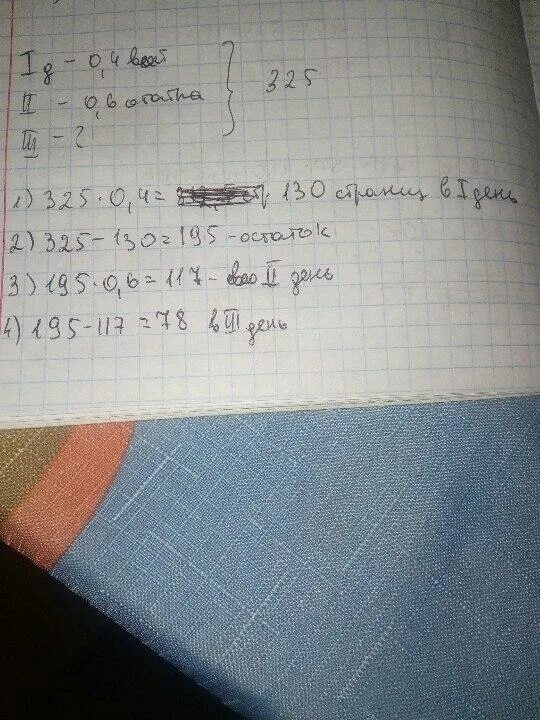 I д - 0,4 всей
II - 0,6 остатка
III - ?
325
1) 325 · 0,4 = 130 страниц в I день
2) 325 - 130 = 195 - остаток
3) 195 · 0,6 = 117 - во II день
4) 195 - 117 = 78 в III день